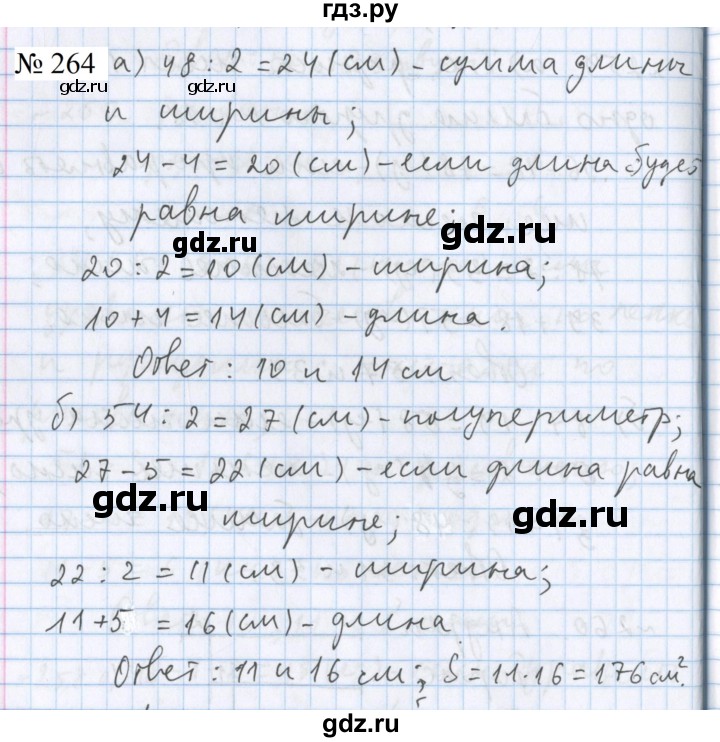 гдз.ру
№ 264 а) 48 : 2 = 24 (см) - сумма длины
gdz.ru gdz.ru
и ширины;
24 - 4 = 20 (см) - если длина будет
равна ширине;
gdz.ru gdz.ru
20 : 2 = 10 (см) - ширина;
10 + 4 = 14 (см) - длина.
Ответ: 10 и 14 см
б) 54 : 2 = 27 (см) - полупериметр;
27 - 5 = 22 (см) - если длина равна
gdz.ru gdz.ru
ширине;
22 : 2 = 11 (см) - ширина;
11 + 5 = 16 (см) - длина
gdz.ru gdz.ru
Ответ: 11 и 16 см; S = 11·16 = 176 см².
gdz.ru gdz.ru
gdz.ru